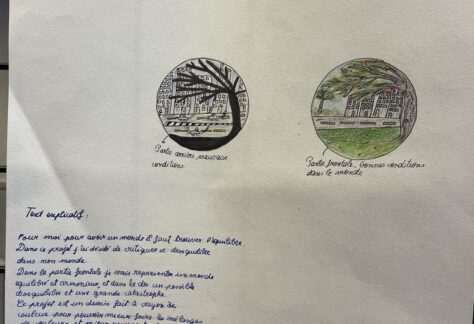 Partie arrière mauvaise
conditions.
Partie frontale, bonnes conditions
dans le monde.
Text explicatif:
Pour moi pour avoir un monde il faut trouver l'équilibre.
Dans ce projet j'ai décidé de critiquer le desequilibre
dans mon monde.
Dans la partie frontale je vais representer un monde
equilibré et armonieux, et dans le dos un possible
desequilibre et une grande catastrophe.
Le projet est un dessin fait à crayon de
couleur pour pouvoir mieux faire les mélanges
de couleurs et mieux